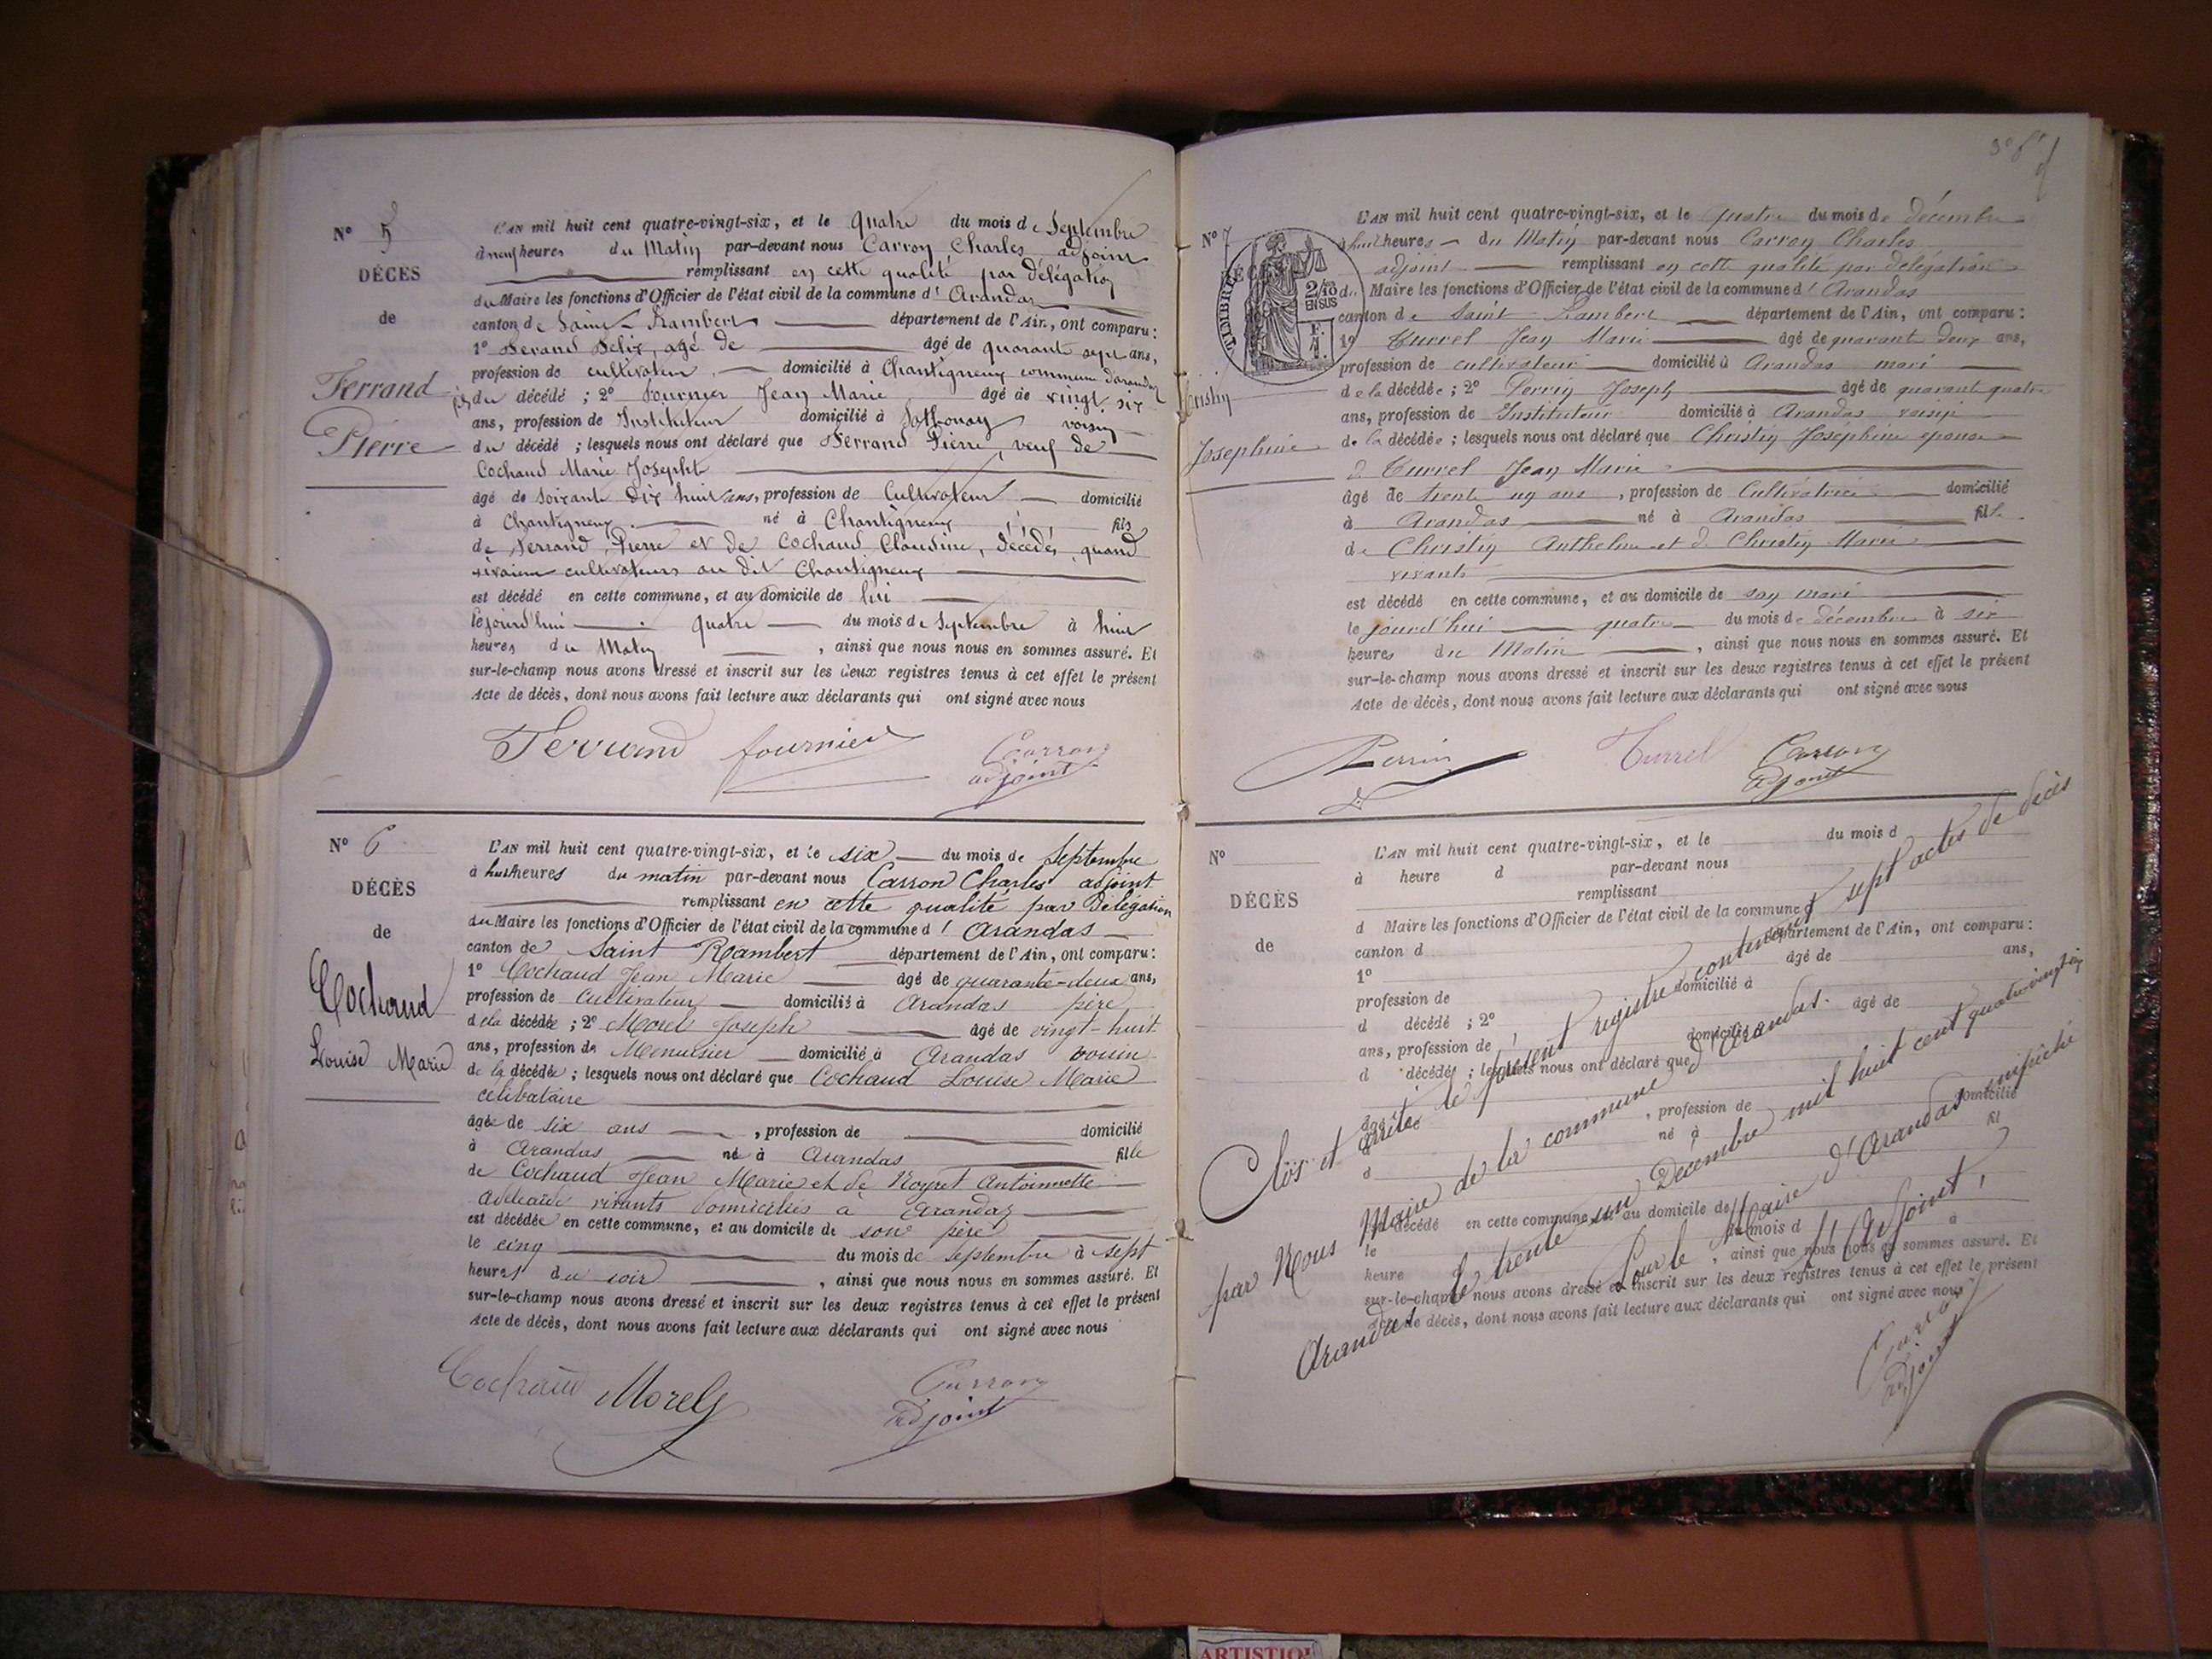 N° 5
DÉCÈS
de
Ferrand
Pierre
L'AN mil huit cent quatre-vingt-six, et le quatre du mois de Septembre
à neuf heures du Matin par-devant nous Carron Charles adjoint
remplissant en cette qualité par délégation
du Maire les fonctions d'Officier de l'état civil de la commune d'Arandas
canton de Saint-Rambert département de l'Ain, ont comparu :
1° Ferrand Félix, agé de âgé de quarante sept ans,
profession de cultivateur domicilié à Chantigneux commune d'arandas
fils du décédé ; 2° Fournier Jean Marie âgé de vingt six
ans, profession de Instituteur domicilié à Sathonay voisin
du décédé ; lesquels nous ont déclaré que Ferrand Pierre, veuf de
Cochaud Marie Josepht
âgé de Soixante Dix huit ans, profession de Cultivateur domicilié
à Chantigneux né à Chantigneux fils
de Ferrand Pierre et de Cochaud Claudine, décédés, quand
vivaient cultivateurs au dit Chantigneux
est décédé en cette commune, et au domicile de lui
le jourd'hui quatre du mois de Septembre à huit
heures du Matin , ainsi que nous nous en sommes assuré. Et
sur-le-champ nous avons dressé et inscrit sur les deux registres tenus à cet effet le présent
Acte de décès, dont nous avons fait lecture aux déclarants qui ont signé avec nous
Ferrand fournier Carron
adjoint
N° 6
DÉCÈS
de
Cochaud
Louise Marie
L'AN mil huit cent quatre-vingt-six, et le six du mois de Septembre
à huit heures du matin par-devant nous Carron Charles adjoint
remplissant en cette qualité par délégation
du Maire les fonctions d'Officier de l'état civil de la commune d'Arandas
canton de Saint Rambert département de l'Ain, ont comparu :
1° Cochaud Jean Marie âgé de quarante-deux ans,
profession de Cultivateur domicilié à Arandas père
de la décédée ; 2° Morel Joseph âgé de vingt-huit
ans, profession de Menuisier domicilié à Arandas voisin
de la décédée ; lesquels nous ont déclaré que Cochaud Louise Marie
célibataire
âgée de six ans , profession de domicilié
à Arandas né à Arandas fille
de Cochaud Jean Marie et de Noyret Antoinnette
Adélaïde vivants domiciliés à Arandas
est décédée en cette commune, et au domicile de son père
le cinq du mois de septembre à sept
heures du soir , ainsi que nous nous en sommes assuré. Et
sur-le-champ nous avons dressé et inscrit sur les deux registres tenus à cet effet le présent
Acte de décès, dont nous avons fait lecture aux déclarants qui ont signé avec nous
Cochaud Morel Carron
adjoint
N° 7
DÉCÈS
TIMBRE
2/10
EN SUS
F.
1.
Christin
Josephine
L'AN mil huit cent quatre-vingt-six, et le quatre du mois de décembre
à huit heures du Matin par-devant nous Carron Charles
adjoint remplissant en cette qualité par délégation
du Maire les fonctions d'Officier de l'état civil de la commune d'Arandas
canton de Saint Rambert département de l'Ain, ont comparu :
1° Turrel Jean Marie âgé de quarant deux ans,
profession de cultivateur domicilié à Arandas mari
de la décédée ; 2° Perrin Joseph âgé de quarant quatre
ans, profession de Instituteur domicilié à Arandas voisin
de la décédée ; lesquels nous ont déclaré que Christin Joséphine epouse
d Turrel Jean Marie
âgé de trente un ans , profession de Cultivatrice domicilié
à Arandas né à Arandas fille
de Christin Anthelme et d Christin Marie
vivants
est décédé en cette commune, et au domicile de son mari
le jourd'hui quatre du mois de décembre à six
heures du Matin , ainsi que nous nous en sommes assuré. Et
sur-le-champ nous avons dressé et inscrit sur les deux registres tenus à cet effet le présent
Acte de décès, dont nous avons fait lecture aux déclarants qui ont signé avec nous
Perrin Turrel Carron
adjoint
N°
DÉCÈS
de
L'AN mil huit cent quatre-vingt-six, et le du mois d
à heure d par-devant nous
remplissant
d Maire les fonctions d'Officier de l'état civil de la commune d
canton d département de l'Ain, ont comparu :
1° âgé de ans,
profession de domicilié à
d décédé ; 2° âgé de
ans, profession de domicilié à
d décédé ; lesquels nous ont déclaré que
âgé de , profession de domicilié
à né à fil
d
est décédé en cette commune, et au domicile de
le du mois d à
heure d , ainsi que nous nous en sommes assuré. Et
sur-le-champ nous avons dressé et inscrit sur les deux registres tenus à cet effet le présent
Acte de décès, dont nous avons fait lecture aux déclarants qui ont signé avec nous
Clos et arrêté le présent registre contenant sept actes de décès
par Nous Maire de la commune d'Arandas.
Arandas le trente un Décembre mil huit cent quatre vingt six
Pour le Maire d'Arandas empêché
L'Adjoint,
Carron
adjoint
ARTISTIQ